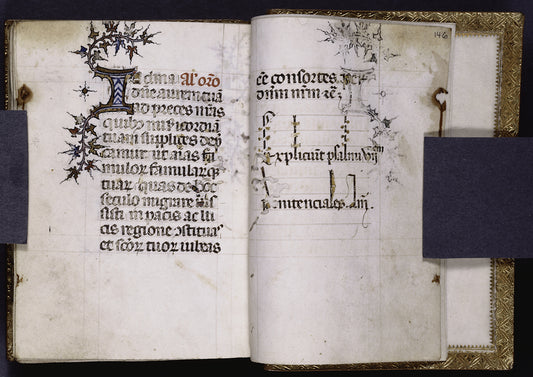 In clina Al' oro
dñe aurem tuā
ad preces nr̄as
quibȝ mīs̄icordiā
tuam supplices dep̄
camur ut aīas fa
mulor famularūqȝ
tuar quas de hoc
seculo migrare iussi
sisti in pacis ac lu
cis regione ostituas
et scōr tuor iubeas
146
eē consortes per
dn̄m nr̄m
Expliciūt psalmi vij
penitenciales am̄